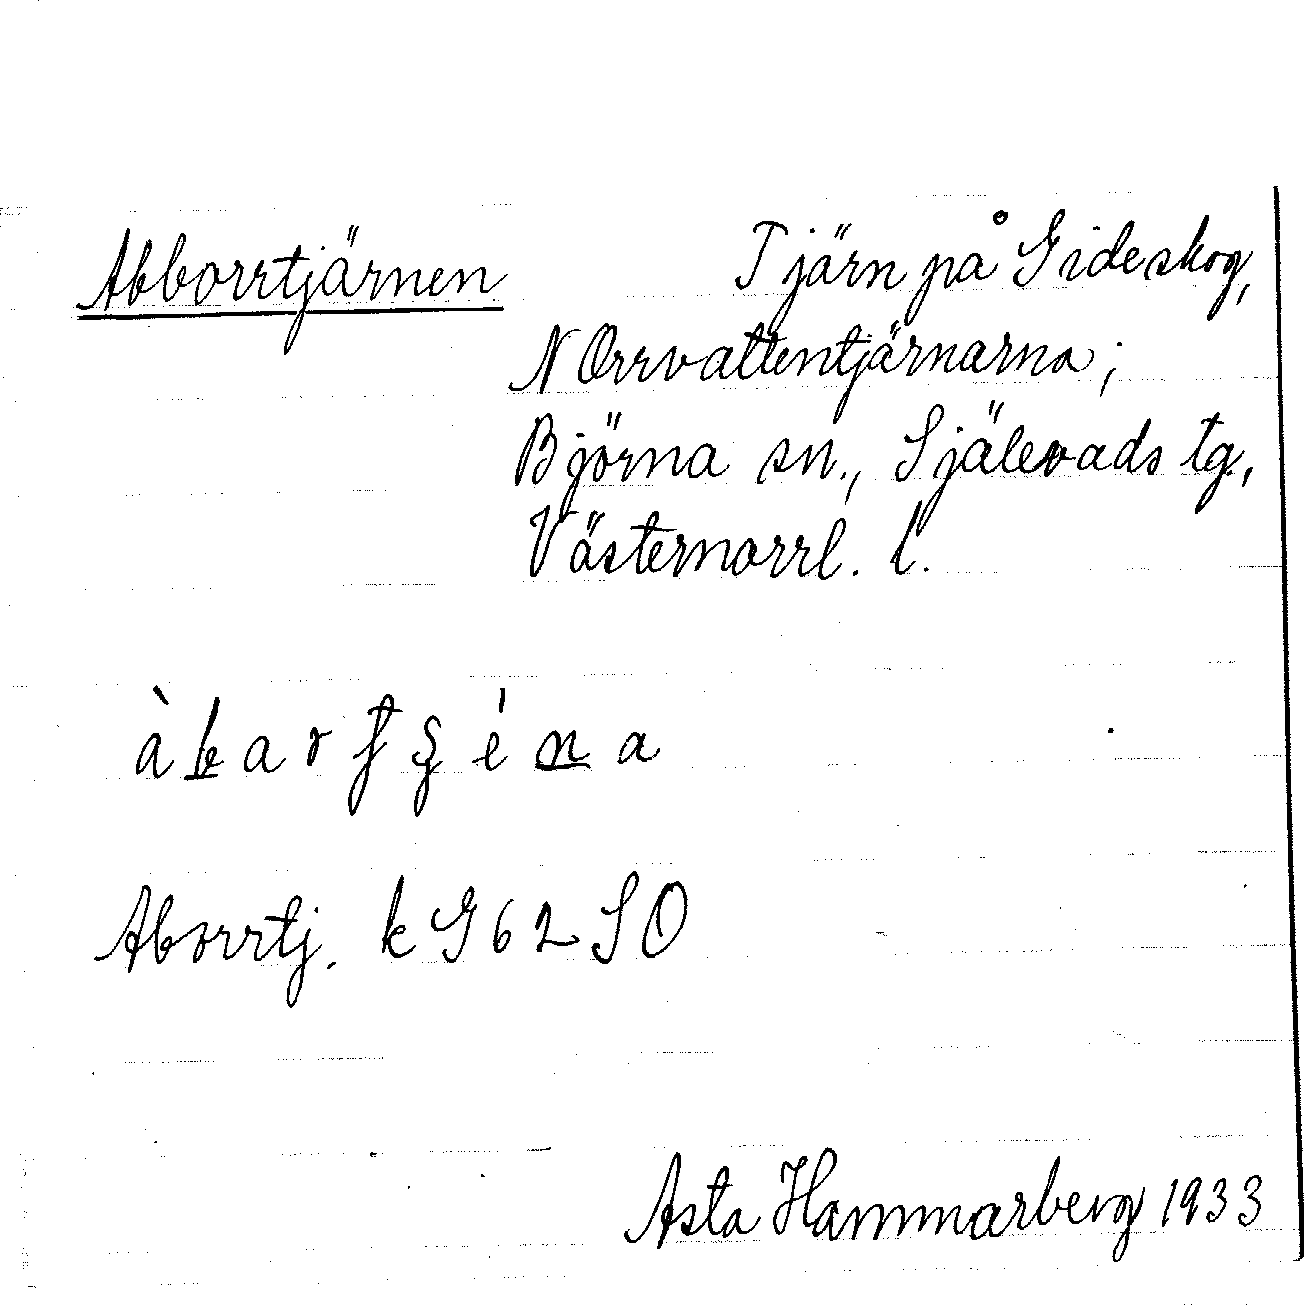 Abborrtjärnen
Tjärn på Gideskog,
N Orrvattentjärnarna;
Björna sn., Själevads tg,
Västernorrl. l.
Aborrtj. k G 62 SO
Asta Hammarberg 1933